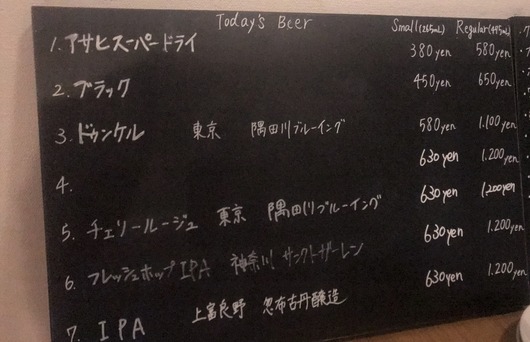 Today's Beer Small(265mL) Regular(495mL)
1. アサヒスーパードライ 380yen 580yen
2. ブラック 450yen 650yen
3. ドゥンケル 東京 隅田川ブルーイング 580yen 1.100yen
4. 630yen 1.200yen
5. チェリールージュ 東京 隅田川ブルーイング 630yen 1.200yen
6. フレッシュホップIPA 神奈川 サンクトガーレン 630yen 1.200yen
7. IPA 上富良野 忽布古丹醸造 630yen 1.200yen